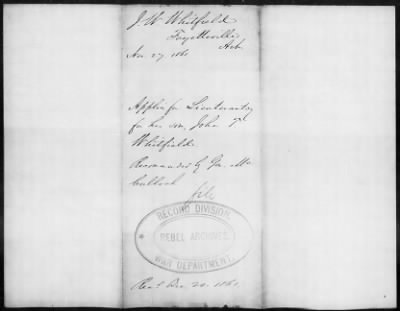 J. W. Whitfield
Fayetteville,
Ark
Nov. 27. 1861
Applies for Lieutenantcy
for his son, John T.
Whitfield
Recommended by Gen. Mc
Culloch
file
RECORD DIVISION.
REBEL ARCHIVES.
WAR DEPARTMENT.
Recd Dec. 20. 1861.